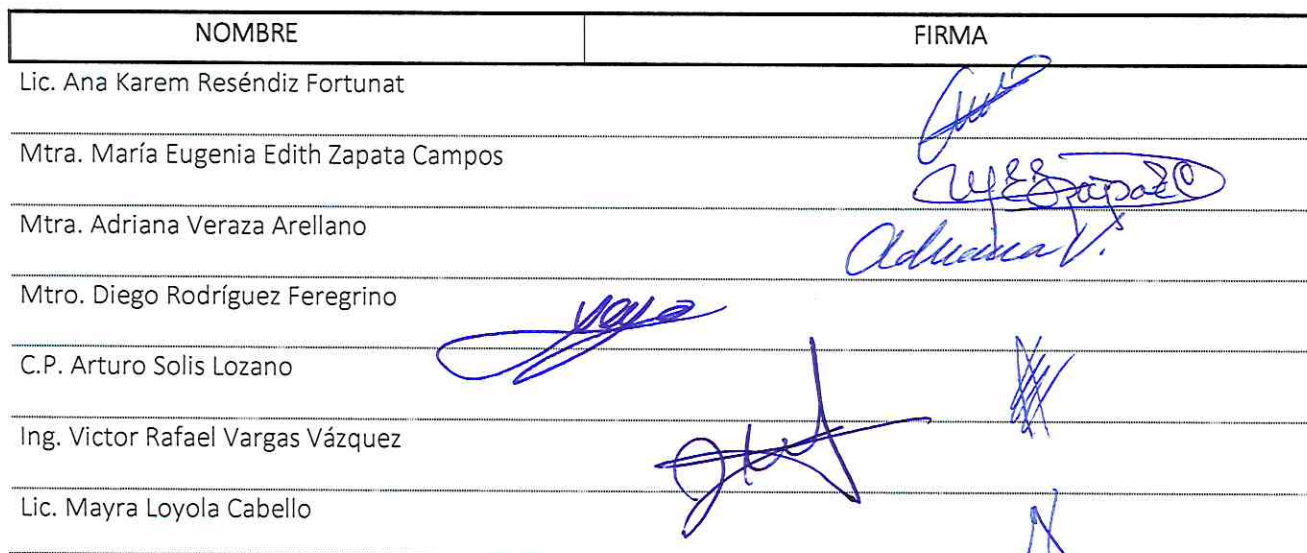 NOMBRE FIRMA
Lic. Ana Karem Reséndiz Fortunat
Mtra. María Eugenia Edith Zapata Campos
Mtra. Adriana Veraza Arellano
Adriana V.
Mtro. Diego Rodríguez Feregrino
C.P. Arturo Solis Lozano
Ing. Victor Rafael Vargas Vázquez
Lic. Mayra Loyola Cabello